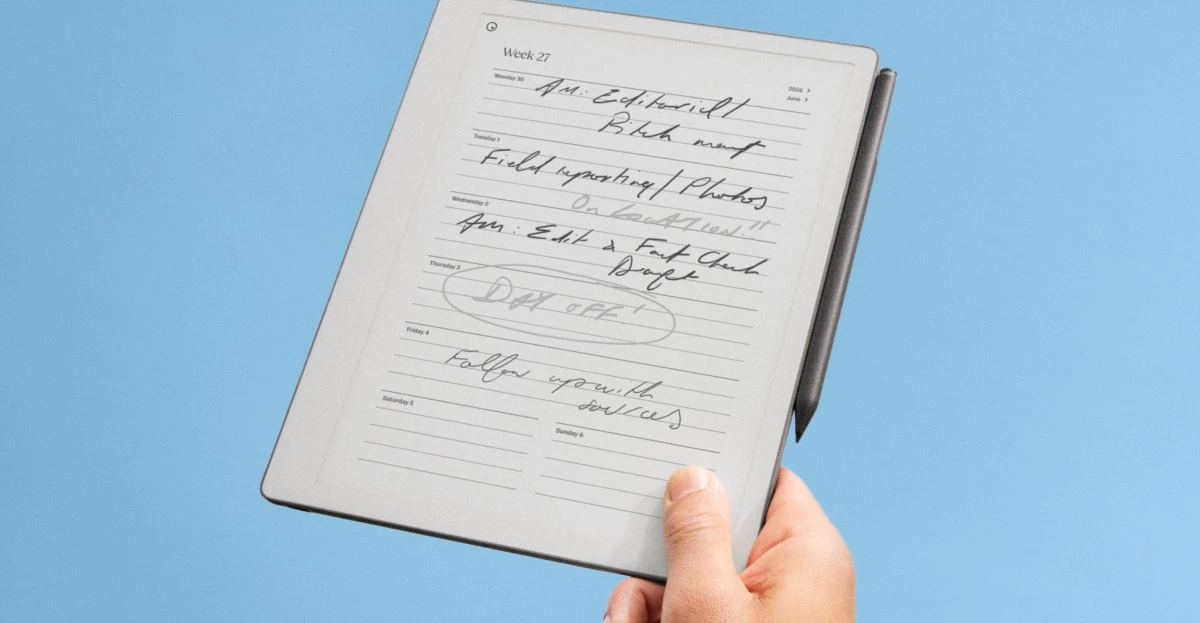 Week 27
Monday 30
2025 >
June >
AM: Editorial/
Pitch
Tuesday 1
Field reporting/Photos
On Location!!
Wednesday 2
AM: Edit & Fact Check
Draft
Thursday 3
DAY OFF!
Friday 4
Follow up with
sources
Saturday 5
Sunday 6